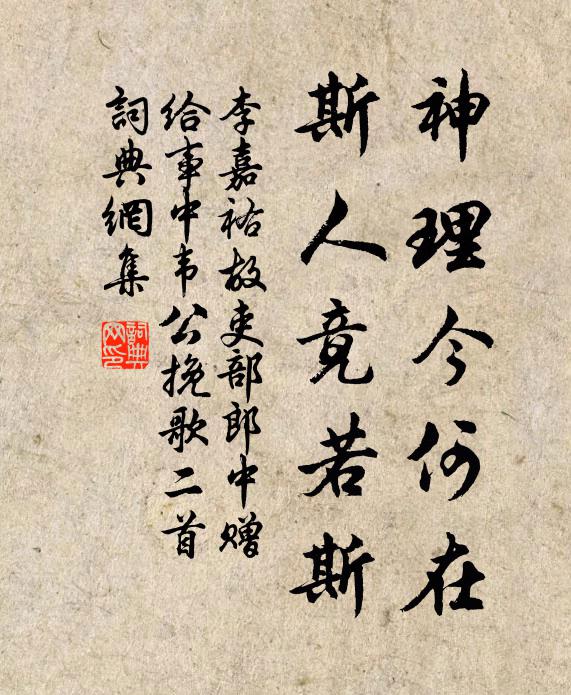 神理今何在
斯人竟若斯
李嘉祐故吏部郎中赠
给事中韦公挽歌二首
詞典網集
詞典
网印